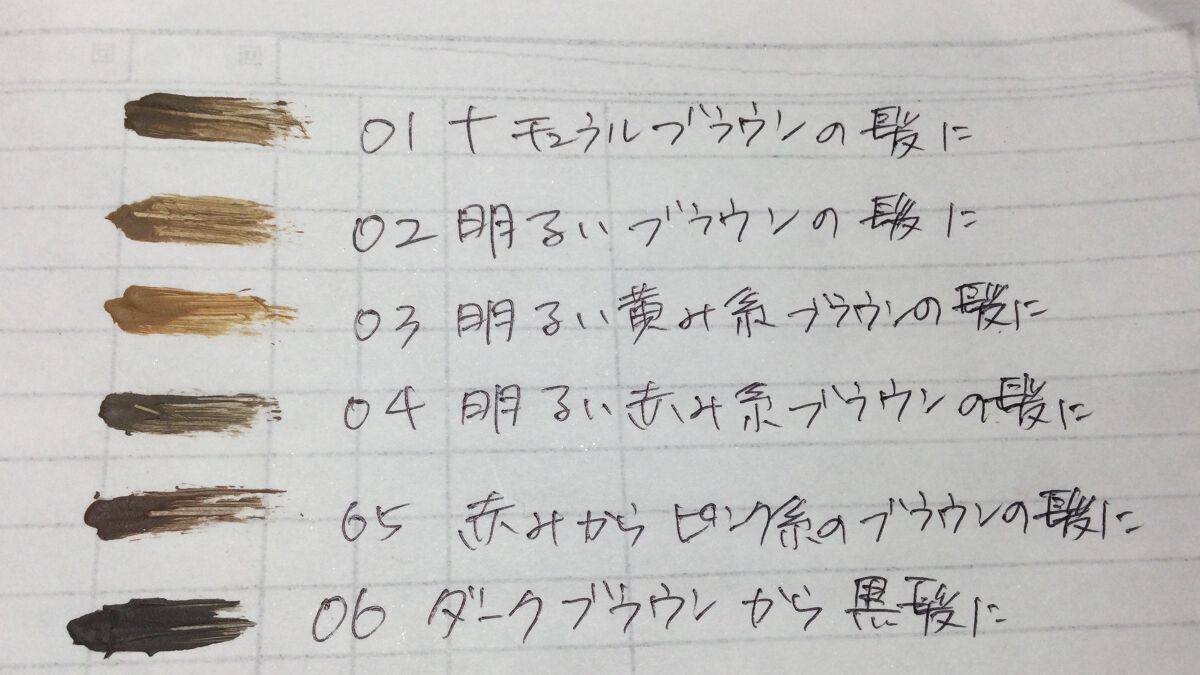 01 ナチュラルブラウンの髪に
02 明るいブラウンの髪に
03 明るい黄み系ブラウンの髪に
04 明るい赤み系ブラウンの髪に
05 赤みからピンク系のブラウンの髪に
06 ダークブラウンから黒髪に